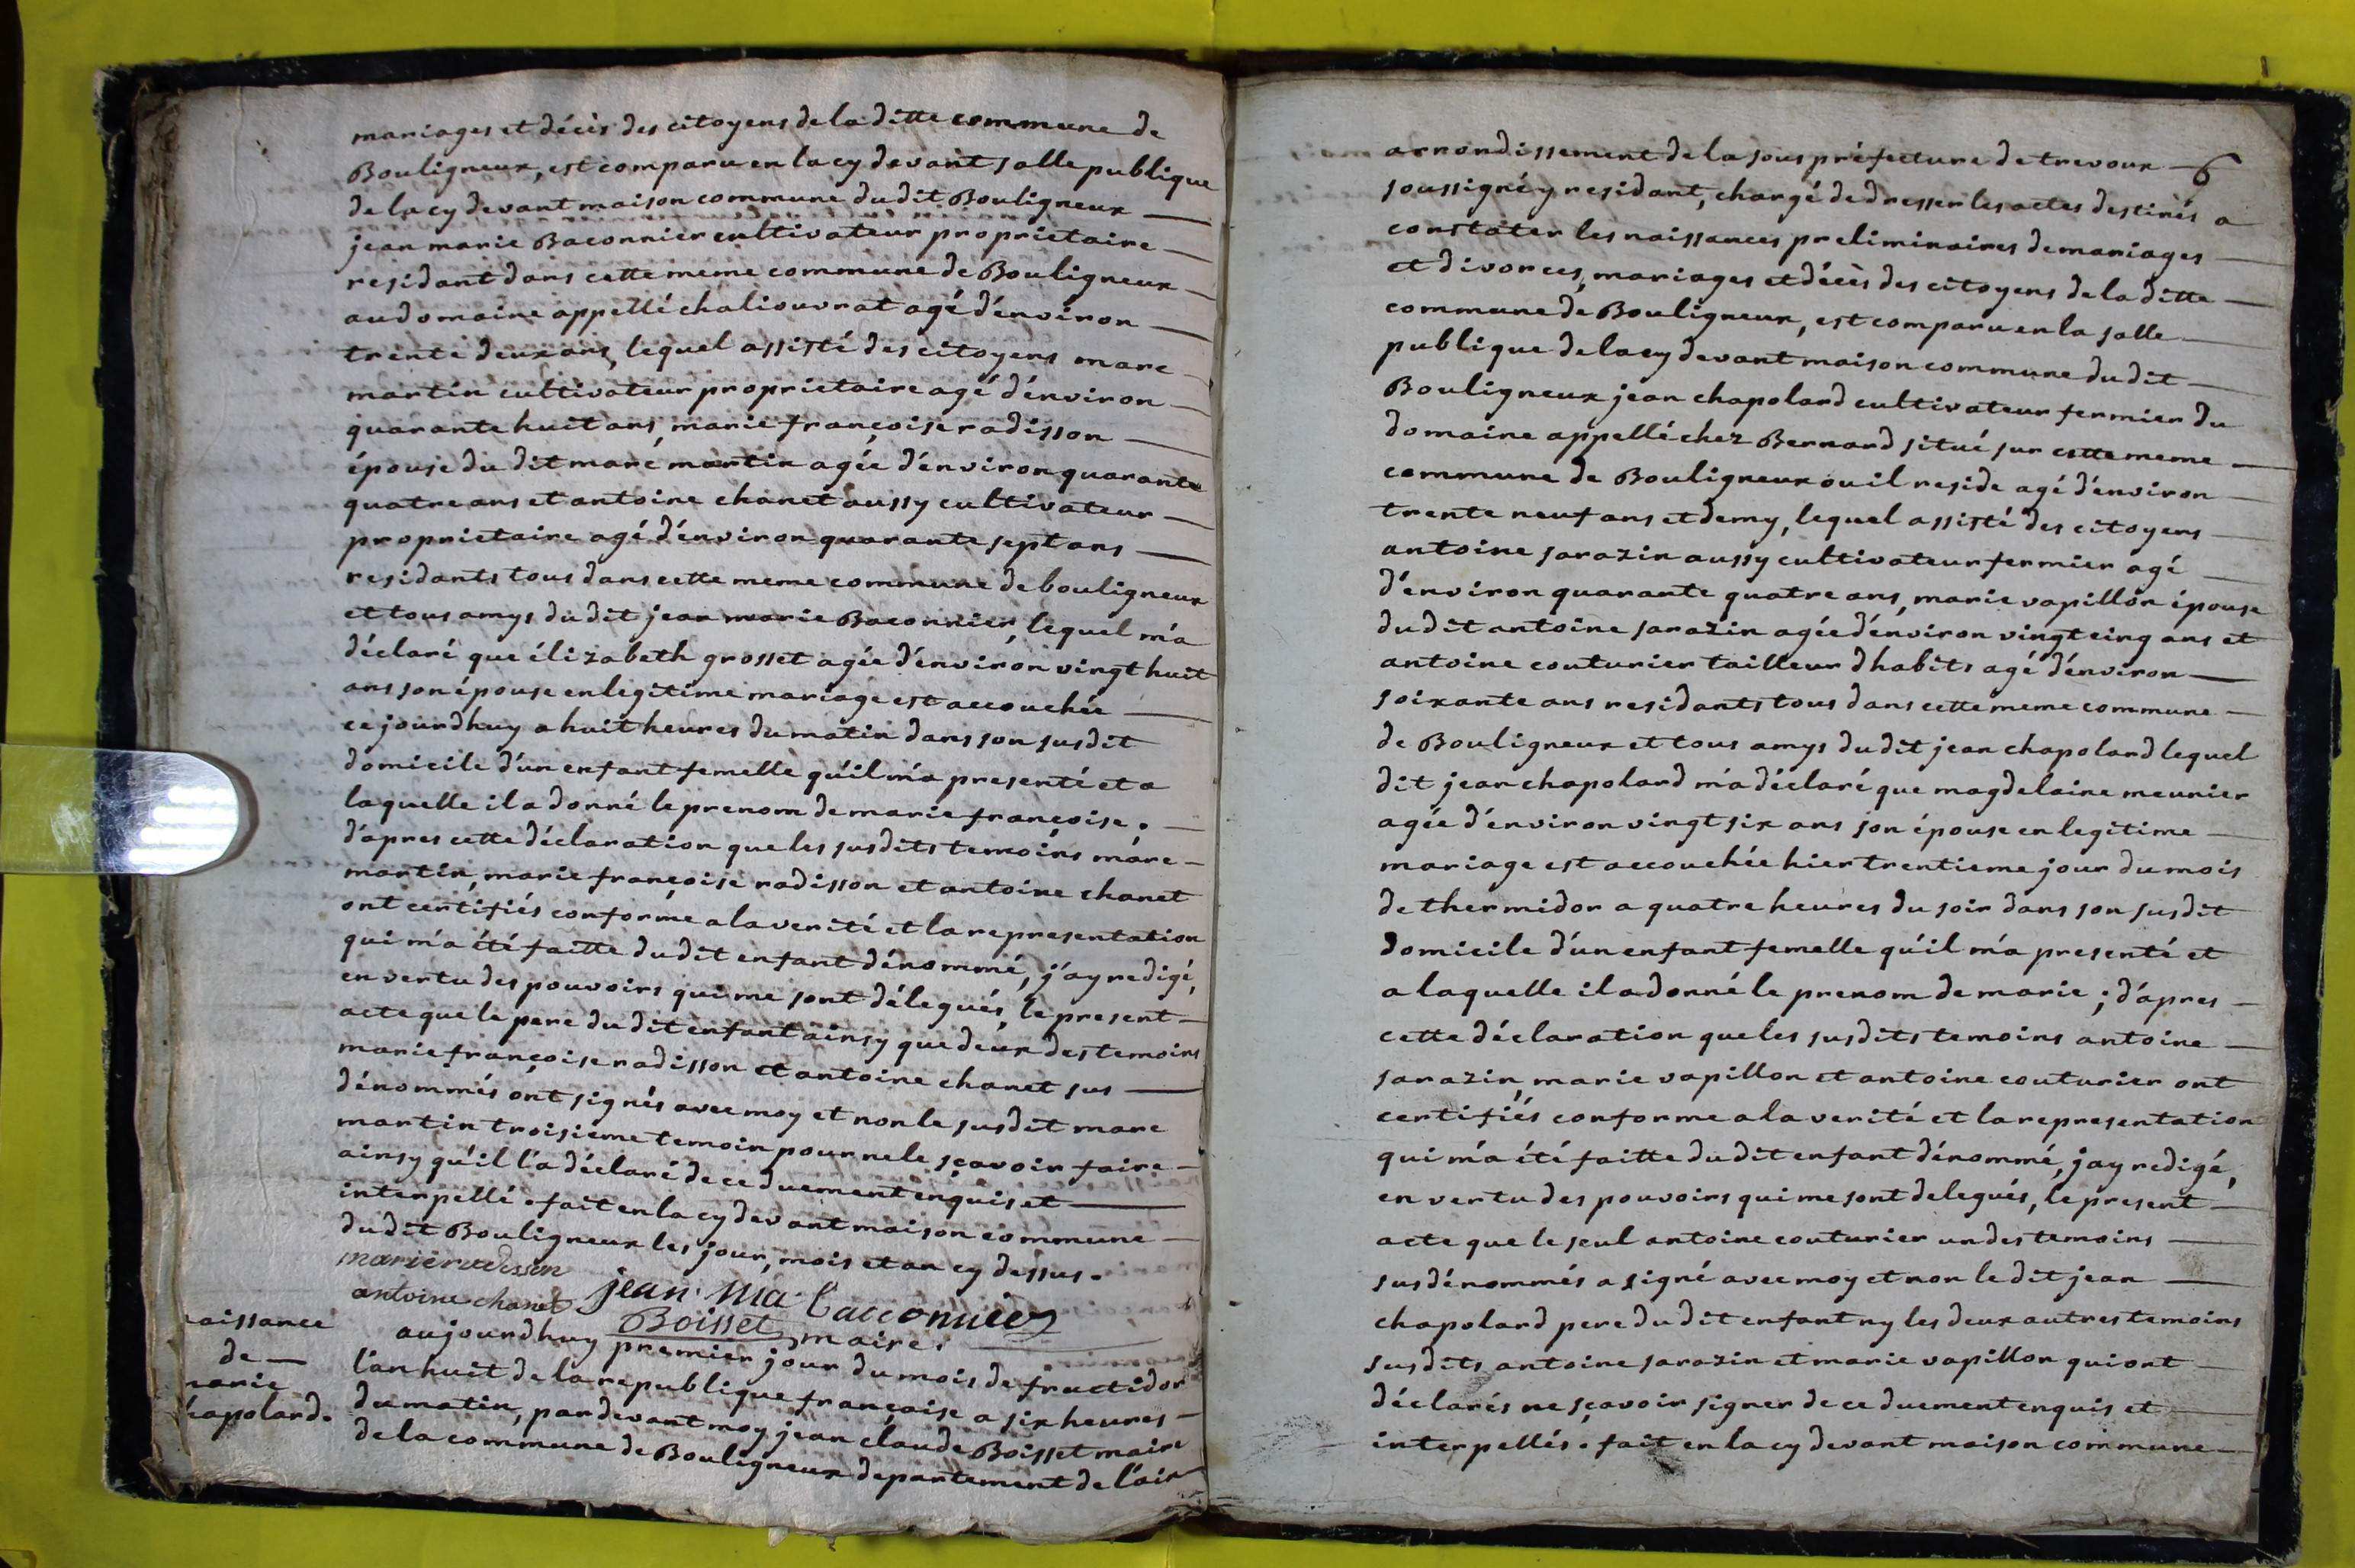 mariages et décès des citoyens de la ditte commune de
Bouligneux, est comparu en la cy devant salle publique
de la cy devant maison commune du dit Bouligneux
jean marie Baconnier cultivateur proprietaire
residant dans cette meme commune de Bouligneux
au domaine appellé chaliouvrat agé d'énviron
trente deux ans, lequel assisté des citoyens marc
martin cultivateur proprietaire agé d'énviron
quarante huit ans, marie françoise radisson
épouse du dit marc martin agée d'énviron quarante
quatre ans et antoine chanet aussy cultivateur
proprietaire agé d'énviron quarante sept ans
residants tous dans cette meme commune de bouligneux
et tous amys du dit jean marie Baconnier, lequel m'a
déclaré que élizabeth grosset agée d'énviron vingt huit
ans son épouse en legitime mariage est accouchée
ce jourdhuy a huit heures du matin dans son susdit
domicile d'un enfant femelle qu'il m'a presenté et a
laquelle il a donné le prenom de marie françoise.
d'apres cette déclaration que les susdits temoins marc
martin, marie françoise radisson et antoine chanet
ont certifiés conforme a la verité et la representation
qui m'a été faitte du dit enfant dénommé, j'ay redigé,
en vertu des pouvoirs qui me sont délegués, le present
acte que le pere du dit enfant ainsy que deux des temoins
marie françoise radisson et antoine chanet sus
dénommés ont signés avec moy et non le susdit marc
martin troisieme temoin pour ne le sçavoir faire
ainsy qu'il l'a déclaré de ce duement enquis et
interpellé. fait en la cy devant maison commune
du dit Bouligneux les jour, mois et an cy dessus.
marie radisson
antoine chanet jean Ma bacconnier
Boisset maire.
naissance
de
marie
chapolard.
aujourdhuy premier jour du mois de fructidor
l'an huit de la republique française a six heures
du matin, par devant moy jean claude Boisset maire
de la commune de Bouligneux departement de l'ain
6
arrondissement de la sous préfecture de trevoux
soussigné y residant, chargé de dresser les actes destinés a
constater les naissances preliminaires de mariages
et divorces, mariages et décès des citoyens de la ditte
commune de Bouligneux, est comparu en la salle
publique de la cy devant maison commune du dit
Bouligneux jean chapolard cultivateur fermier du
domaine appellé chez Bernard situé sur cette meme
commune de Bouligneux ou il reside agé d'énviron
trente neuf ans et demy, lequel assisté des citoyens
antoine sarazin aussy cultivateur fermier agé
d'énviron quarante quatre ans, marie vapillon épouse
du dit antoine sarazin agée d'énviron vingt cinq ans et
antoine couturier tailleur d'habits agé d'énviron
soixante ans residants tous dans cette meme commune
de Bouligneux et tous amys du dit jean chapolard lequel
dit jean chapolard m'a déclaré que magdelaine meunier
agée d'énviron vingt six ans son épouse en legitime
mariage est accouchée hier trentieme jour du mois
de thermidor a quatre heures du soir dans son susdit
domicile d'un enfant femelle qu'il m'a presenté et
a laquelle il a donné le prenom de marie ; d'apres
cette déclaration que les susdits temoins antoine
sarazin, marie vapillon et antoine couturier ont
certifiés conforme a la verité et la representation
qui m'a été faitte du dit enfant dénommé, j'ay redigé,
en vertu des pouvoirs qui me sont delegués, le present
acte que le seul antoine couturier un des temoins
susdénommés a signé avec moy et non le dit jean
chapolard pere du dit enfant ny les deux autres temoins
susdits antoine sarazin et marie vapillon qui ont
déclarés ne sçavoir signer de ce duement enquis et
interpellés. fait en la cy devant maison commune